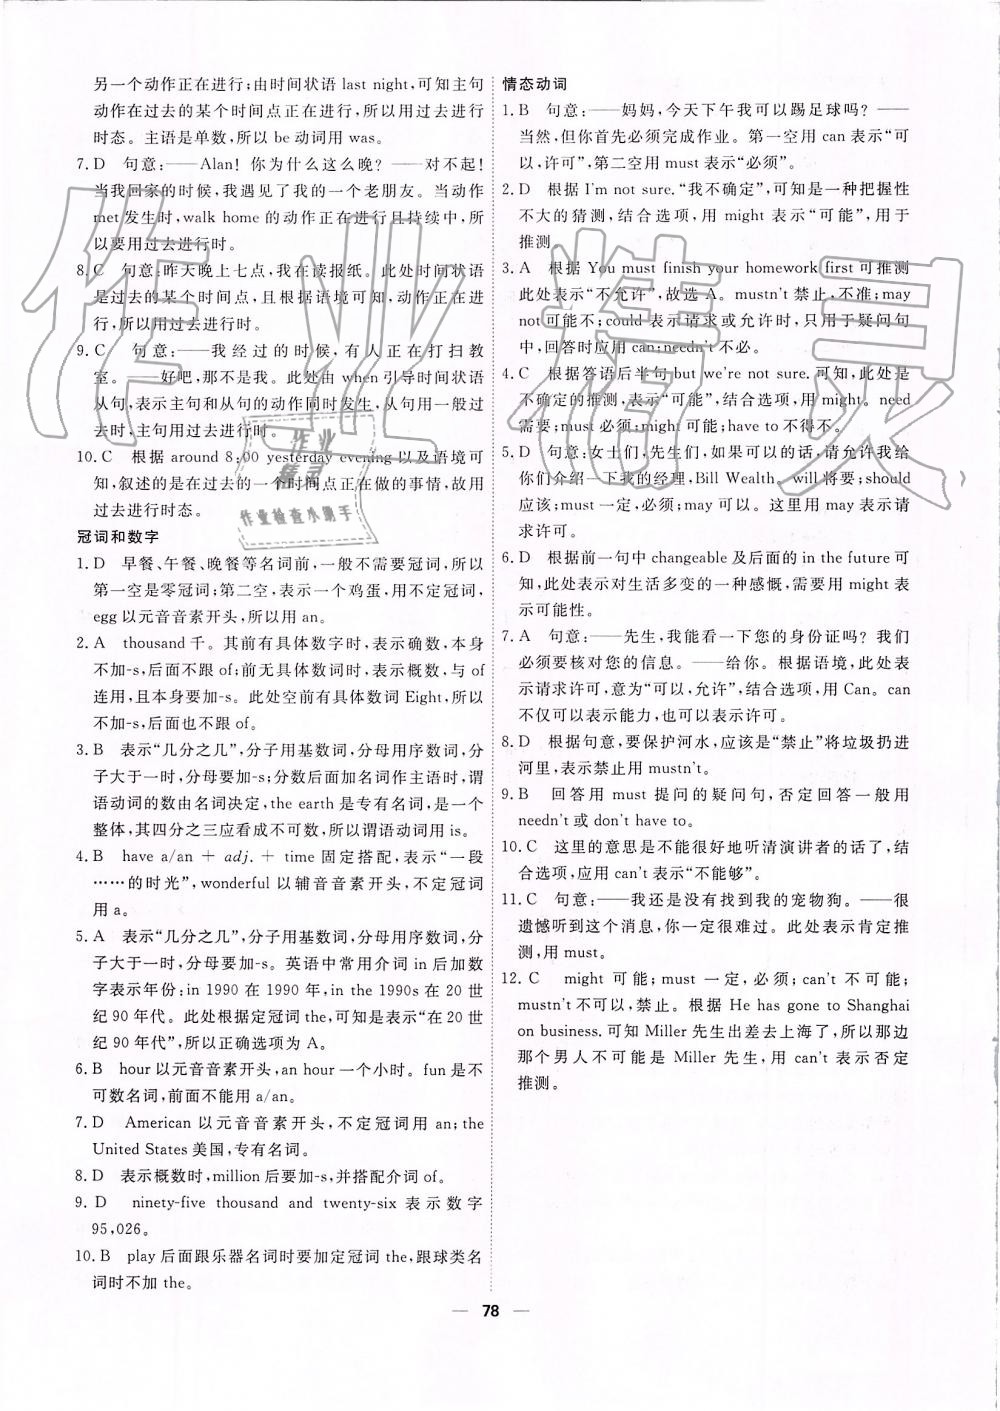 另一个动作正在进行；由时间状语 last night，可知主句
动作在过去的某个时间点正在进行，所以用过去进行
时态。主语是单数，所以 be 动词用 was。
7. D 句意：——Alan！你为什么这么晚？——对不起！
当我回家的时候，我遇见了我的一个老朋友。当动作
met 发生时，walk home 的动作正在进行且持续中，所
以要用过去进行时。
8. C 句意：昨天晚上七点，我在读报纸。此处时间状语
是过去的某个时间点，且根据语境可知，动作正在进
行，所以用过去进行时。
9. C 句意：——我经过的时候，有人正在打扫教
室。——好吧，那不是我。此处由 when 引导时间状语
从句，表示主句和从句的动作同时发生，从句用一般过
去时，主句用过去进行时。
10. C 根据 around 8:00 yesterday evening 以及语境可
知，叙述的是在过去的一个时间点正在做的事情，故用
过去进行时态。
冠词和数字
1. D 早餐、午餐、晚餐等名词前，一般不需要冠词，所以
第一空是零冠词；第二空，表示一个鸡蛋，用不定冠词，
egg 以元音音素开头，所以用 an。
2. A thousand 千。其前有具体数字时，表示确数，本身
不加-s，后面不跟 of；前无具体数词时，表示概数，与 of
连用，且本身要加-s。此处空前有具体数词 Eight，所以
不加-s，后面也不跟 of。
3. B 表示“几分之几”，分子用基数词，分母用序数词，
分子大于一时，分母要加-s；分数后面加名词作主语时，谓
语动词的数由名词决定，the earth 是专有名词，是一个
整体，其四分之三应看成不可数，所以谓语动词用 is。
4. B have a/an ＋ adj. ＋ time 固定搭配，表示“一段
……的时光”，wonderful 以辅音音素开头，不定冠词
用 a。
5. A 表示“几分之几”，分子用基数词，分母用序数词，分
子大于一时，分母要加-s。英语中常用介词 in 后加数
字表示年份：in 1990 在 1990 年，in the 1990s 在 20 世
纪 90 年代。此处根据定冠词 the，可知是表示“在 20 世
纪 90 年代”，所以正确选项为 A。
6. B hour 以元音音素开头，an hour 一个小时。fun 是不
可数名词，前面不能用 a/an。
7. D American 以元音音素开头，不定冠词用 an；the
United States 美国，专有名词。
8. D 表示概数时，million 后要加-s，并搭配介词 of。
9. D ninety-five thousand and twenty-six 表示数字
95,026。
10. B play 后面跟乐器名词时要加定冠词 the，跟球类名
词时不加 the。
情态动词
1. B 句意：——妈妈，今天下午我可以踢足球吗？——
当然，但你首先必须完成作业。第一空用 can 表示“可
以，许可”，第二空用 must 表示“必须”。
2. D 根据 I'm not sure. “我不确定”，可知是一种把握性
不大的猜测，结合选项，用 might 表示“可能”，用于
推测。
3. A 根据 You must finish your homework first 可推测
此处表示“不允许”，故选 A。mustn't 禁止，不准；may
not 可能不；could 表示请求或允许时，只用于疑问句
中，回答时应用 can；needn't 不必。
4. C 根据答语后半句 but we're not sure. 可知，此处是
不确定的推测，表示“可能”，用 might。need
需要；must 必须；might 可能；have to 不得不。
5. D 句意：女士们，先生们，如果可以的话，请允许我给
你们介绍一下我的经理，Bill Wealth。will 将要；should
应该；must 必须；may 可以。这里用 may 表示请
求许可。
6. D 根据前一句中 changeable 及后面的 in the future 可
知，此处表示对生活多变的一种感慨，需要用 might 表
示可能性。
7. A 句意：——先生，我能看一下您的身份证吗？我们
必须要核对您的信息。——给你。根据语境，此处表
示请求许可，意为“可以，允许”，结合选项，用 Can。can
不仅可以表示能力，也可以表示许可。
8. D 根据句意，要保护河水，应该是“禁止”将垃圾扔进
河里，表示禁止用 mustn't。
9. B 回答用 must 提问的疑问句，否定回答一般用
needn't 或 don't have to。
10. C 这里的意思是不能很好地听清演讲者的话了，结
合选项，应用 can't 表示“不能够”。
11. C 句意：——我还是没有找到我的宠物狗。——很
遗憾听到这个消息，你一定很难过。此处表示肯定推
测，用 must。
12. C might 可能；must 一定，必须；can't 不可能；
mustn't 不可以，禁止。根据 He has gone to Shanghai
on business. 可知 Miller 先生出差去上海了，所以那边
那个男人不可能是 Miller 先生，用 can't 表示否定
推测。
— 78 —
作业精灵
作业
精灵
作业检查小助手